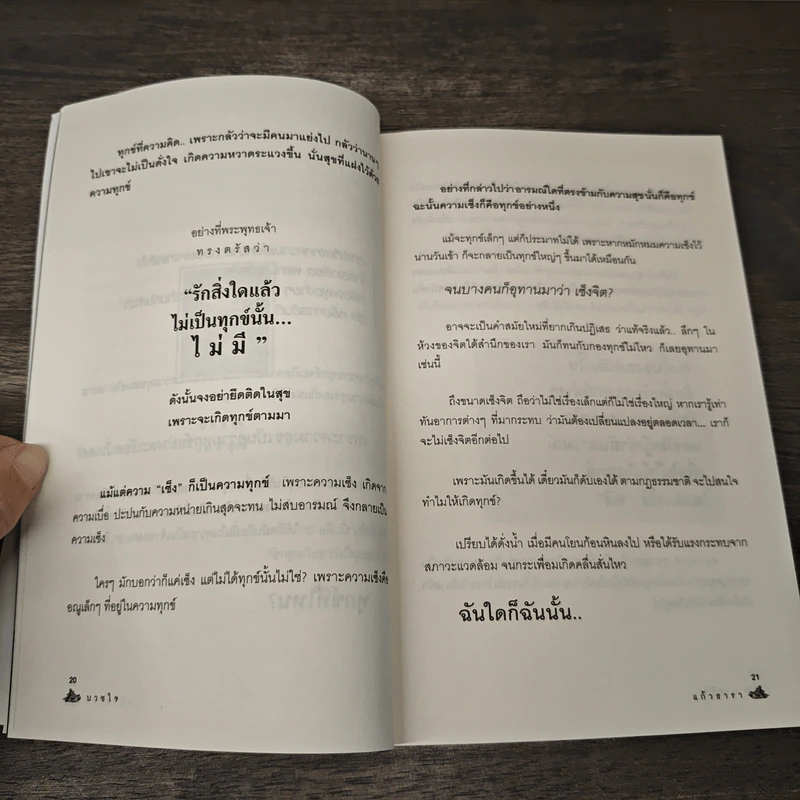 ทุกข์ที่ความคิด.. เพราะกลัวว่าจะมีคนมาแย่งไป กลัวว่านานๆ
ไปเขาจะไม่เป็นดั่งใจ เกิดความหวาดระแวงขึ้น นั่นสุขที่แฝงไว้ด้วย
ความทุกข์
อย่างที่พระพุทธเจ้า
ทรงตรัสว่า
“รักสิ่งใดแล้ว
ไม่เป็นทุกข์นั้น...
ไม่มี”
ดังนั้นจงอย่ายึดติดในสุข
เพราะจะเกิดทุกข์ตามมา
แม้แต่ความ “เซ็ง” ก็เป็นความทุกข์ เพราะความเซ็ง เกิดจาก
ความเบื่อ ปะปนกับความหน่ายเกินสุดจะทน ไม่สบอารมณ์ จึงกลายเป็น
ความเซ็ง
ใครๆ มักบอกว่าก็แค่เซ็ง แต่ไม่ได้ทุกข์นั้นไม่ใช่? เพราะความเซ็งคือ
อณูเล็กๆ ที่อยู่ในความทุกข์
20
บวชใจ
อย่างที่กล่าวไปว่าอารมณ์ใดที่ตรงข้ามกับความสุขนั่นก็คือทุกข์
ฉะนั้นความเซ็งก็คือทุกข์อย่างหนึ่ง
แม้จะทุกข์เล็กๆ แต่ก็ประมาทไม่ได้ เพราะหากหมักหมมความเซ็งไว้
นานวันเข้า ก็จะกลายเป็นทุกข์ใหญ่ๆ ขึ้นมาได้เหมือนกัน
จนบางคนก็อุทานมาว่า เซ็งจิต?
อาจจะเป็นคำสมัยใหม่ที่ยากเกินปฏิเสธ ว่าแท้จริงแล้ว.. ลึกๆ ใน
ห้วงของจิตใต้สำนึกของเรา มันก็ทนกับกองทุกข์ไม่ไหว ก็เลยอุทานมา
เช่นนี้
ถึงขนาดเซ็งจิต ถือว่าไม่ใช่เรื่องเล็กแต่ก็ไม่ใช่เรื่องใหญ่ หากเรารู้เท่า
ทันอาการต่างๆ ที่มากระทบ ว่ามันต้องเปลี่ยนแปลงอยู่ตลอดเวลา... เราก็
จะไม่เซ็งจิตอีกต่อไป
เพราะมันเกิดขึ้นได้ เดี๋ยวมันก็ดับเองได้ ตามกฎธรรมชาติ จะไปสนใจ
ทำไมให้เกิดทุกข์?
เปรียบได้ดั่งน้ำ เมื่อมีคนโยนก้อนหินลงไป หรือได้รับแรงกระทบจาก
สภาวะแวดล้อม จนกระเพื่อมเกิดคลื่นสั่นไหว
ฉันใดก็ฉันนั้น..
21
แก้วธารา